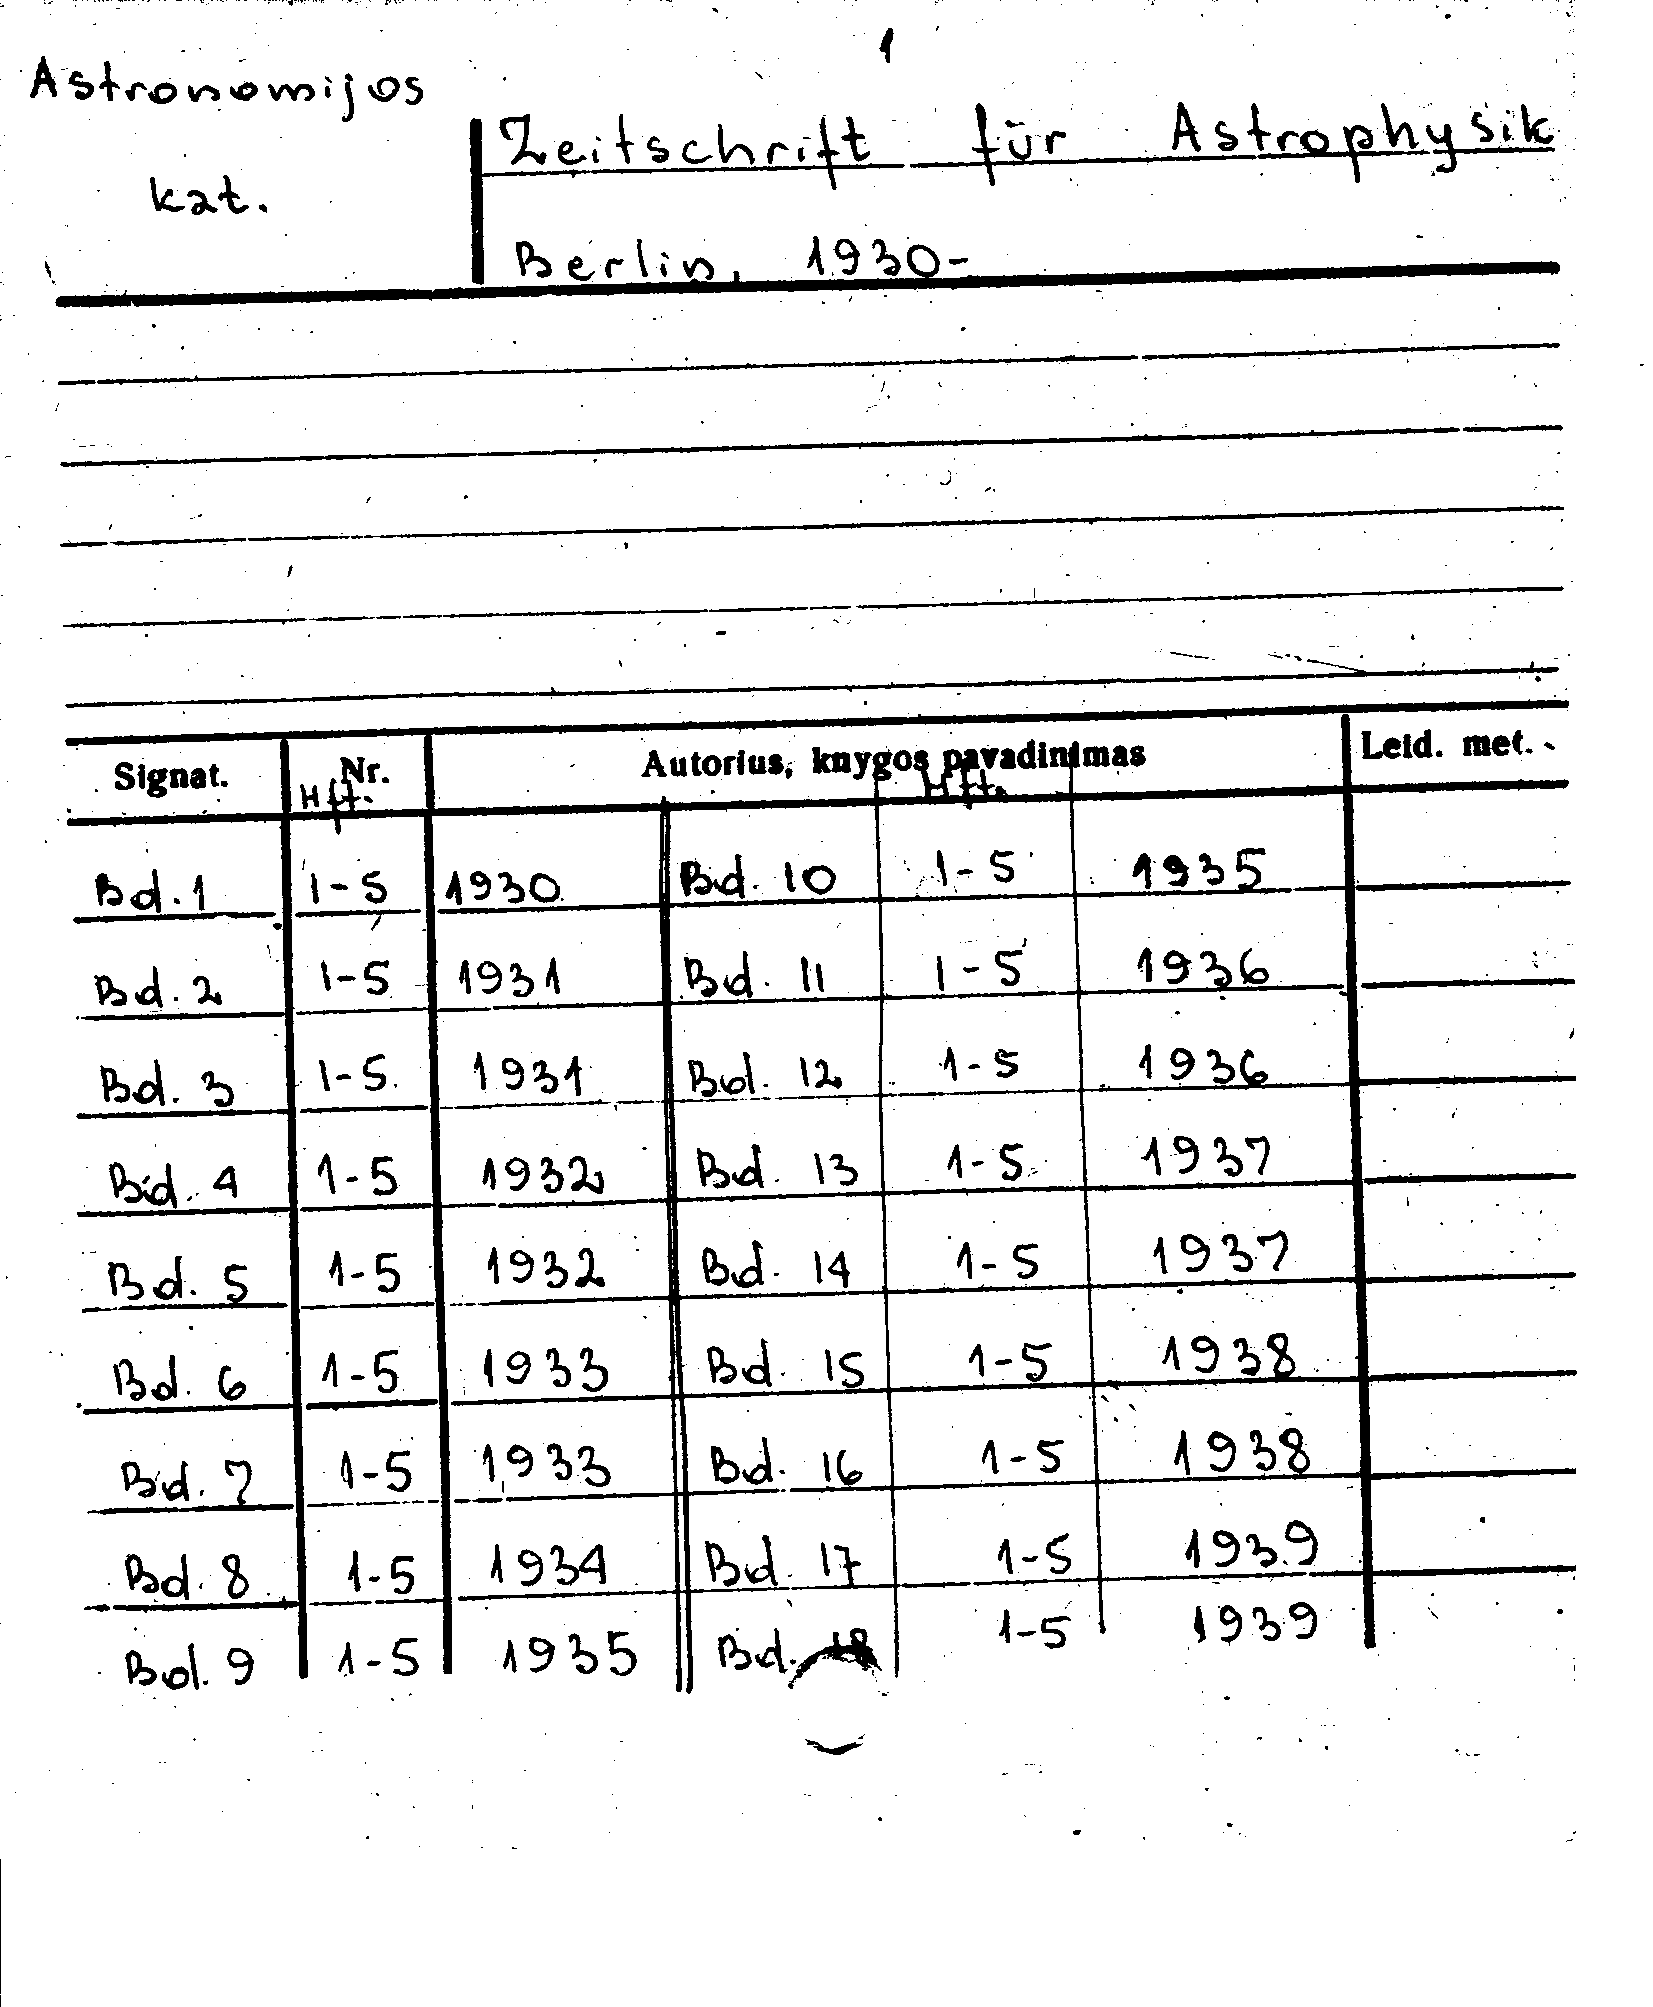 1
Astronomijos
Zeitschrift für Astrophysik
kat.
Berlin, 1930-
Signat. Nr. Autorius, knygos pavadinimas Leid. met.
Hft. Hft.
Bd. 1 1-5 1930 Bd. 10 1-5 1935
Bd. 2 1-5 1931 Bd. 11 1-5 1936
Bd. 3 1-5 1931 Bd. 12 1-5 1936
Bd. 4 1-5 1932 Bd. 13 1-5 1937
Bd. 5 1-5 1932 Bd. 14 1-5 1937
Bd. 6 1-5 1933 Bd. 15 1-5 1938
Bd. 7 1-5 1933 Bd. 16 1-5 1938
Bd. 8 1-5 1934 Bd. 17 1-5 1939
Bd. 9 1-5 1935 Bd. 18 1-5 1939